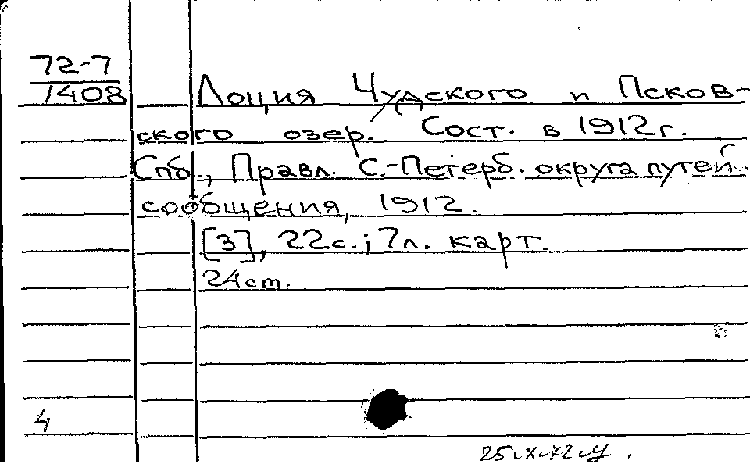 72-7
1408
Лоция Чудского и Псков-
ского озер. Сост. в 1912 г.
Спб., Правл. С.-Петерб. округа путей
сообщения, 1912.
[3], 22с.; 7л. карт.
24 cm.
4